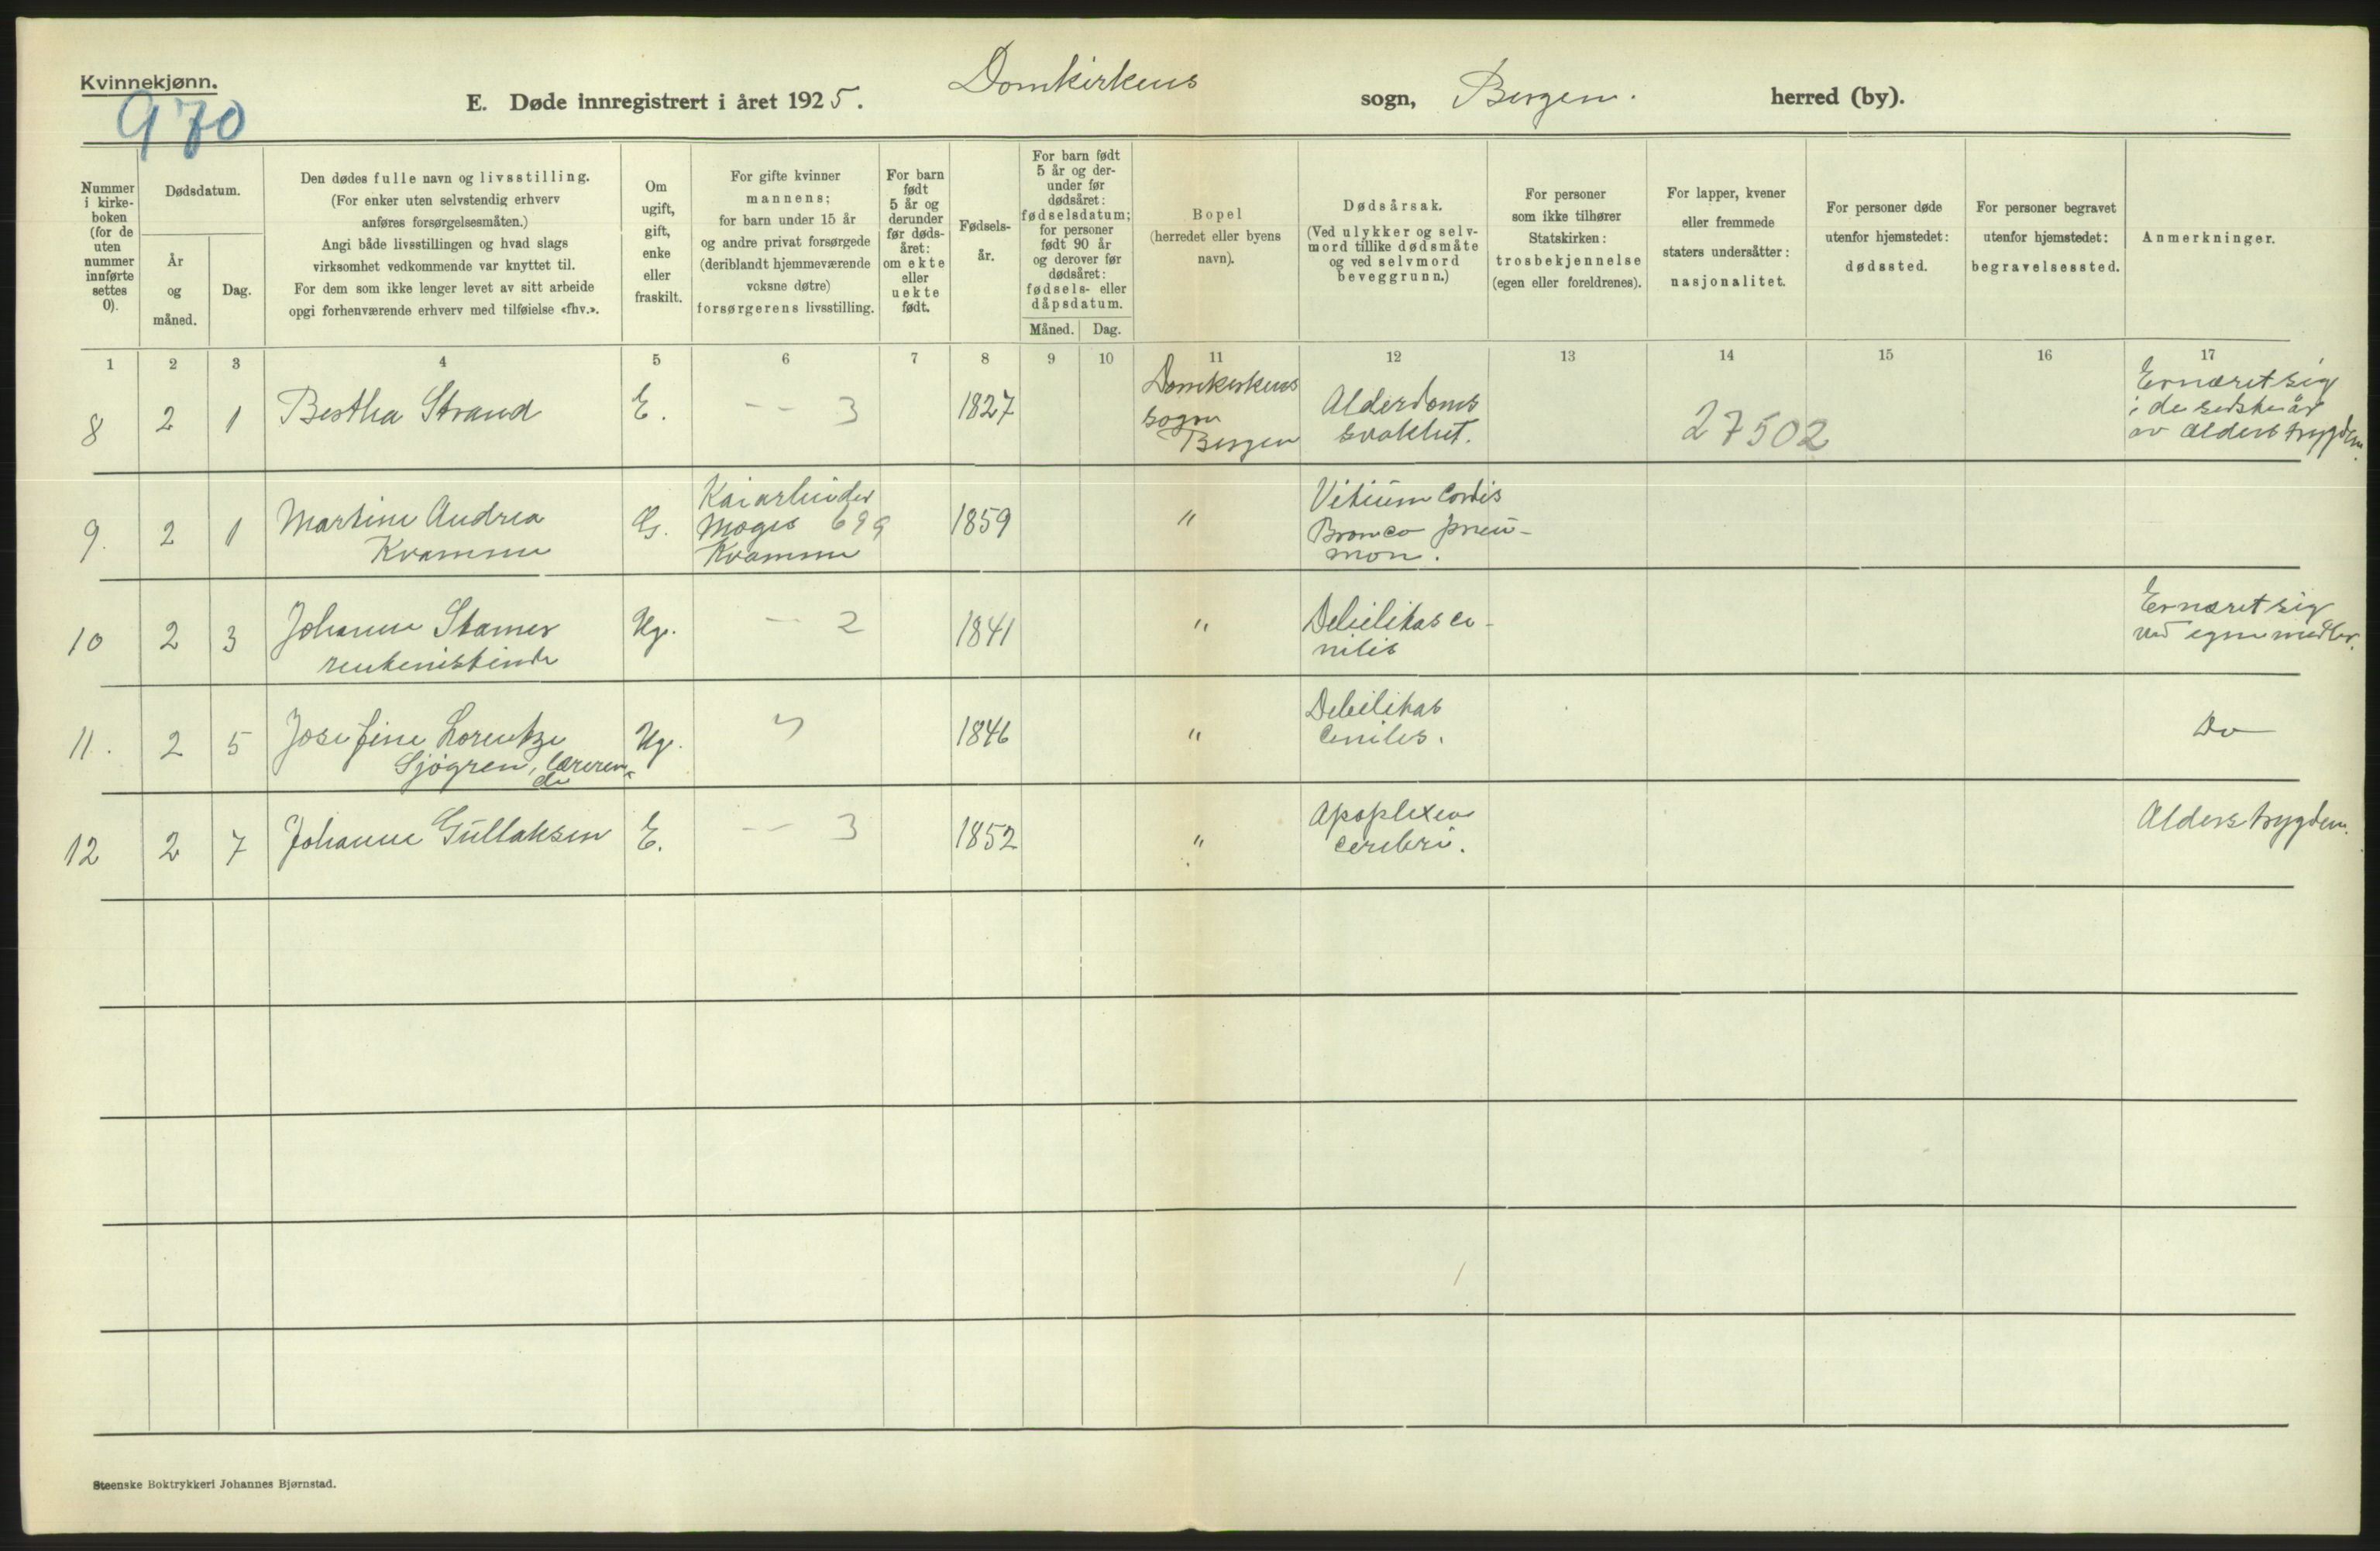 Kvinnekjønn.
970
E. Døde innregistrert i året 1925. Domkirkens sogn, Bergen. herred (by).
Nummer
i kirke-
boken
(for de
uten
nummer
innførte
settes
0).
Dødsdatum.
År
og
måned.
Dag.
Den dødes fulle navn og livsstilling.
(For enker uten selvstendig erhverv
anføres forsørgelsesmåten.)
Angi både livsstillingen og hvad slags
virksomhet vedkommende var knyttet til.
For dem som ikke lenger levet av sitt arbeide
opgi forhenværende erhverv med tilføielse «fhv.».
Om
ugift,
gift,
enke
eller
fraskilt.
For gifte kvinner
mannens;
for barn under 15 år
og andre privat forsørgede
(deriblandt hjemmeværende
voksne døtre)
forsørgerens livsstilling.
For barn
født
5 år og
derunder
før døds-
året:
om ekte
eller
uekte
født.
Fødsels-
år.
For barn født
5 år og der-
under før
dødsåret:
fødselsdatum;
for personer
født 90 år
og derover før
dødsåret:
fødsels- eller
dåpsdatum.
Måned. Dag.
Bopel
(herredet eller byens
navn).
Dødsårsak.
(Ved ulykker og selv-
mord tillike dødsmåte
og ved selvmord
beveggrunn.)
For personer
som ikke tilhører
Statskirken:
trosbekjennelse
(egen eller foreldrenes).
For lapper, kvener
eller fremmede
staters undersåtter:
nasjonalitet.
For personer døde
utenfor hjemstedet:
dødssted.
For personer begravet
utenfor hjemstedet:
begravelsessted.
Anmerkninger.
1 2 3 4 5 6 7 8 9 10 11 12 13 14 15 16 17
8 2 1 Bertha Strand E. -- 3 1827
Domkirkens
sogn
Bergen
Alderdoms
svakhet.
27502
Ernæret sig
i de sidste år
av alderstrygden.
9. 2 1 Martine Andrea
Kvamme
G.
Kaiarbeider
Mogns 699
Kvamme
1859 "
Vitium Cordis
Bronco pneu-
mon.
10 2 3 Johanne Stamer
rentenistinde
Ug. - 2 1841 "
Debilitas ce-
nilis
Ernæret sig
ved egne midler.
11. 2 5 Josefine Lorentze
Sjøgren, lærerin-
de
Ug. 4 1846 "
Debilitas
Ceniles.
Do
12 2 7 Johanne Gullaksen E. -- 3 1852 "
Apoplexea
cerebri.
Alderstrygden.
Steenske Boktrykkeri Johannes Bjørnstad.